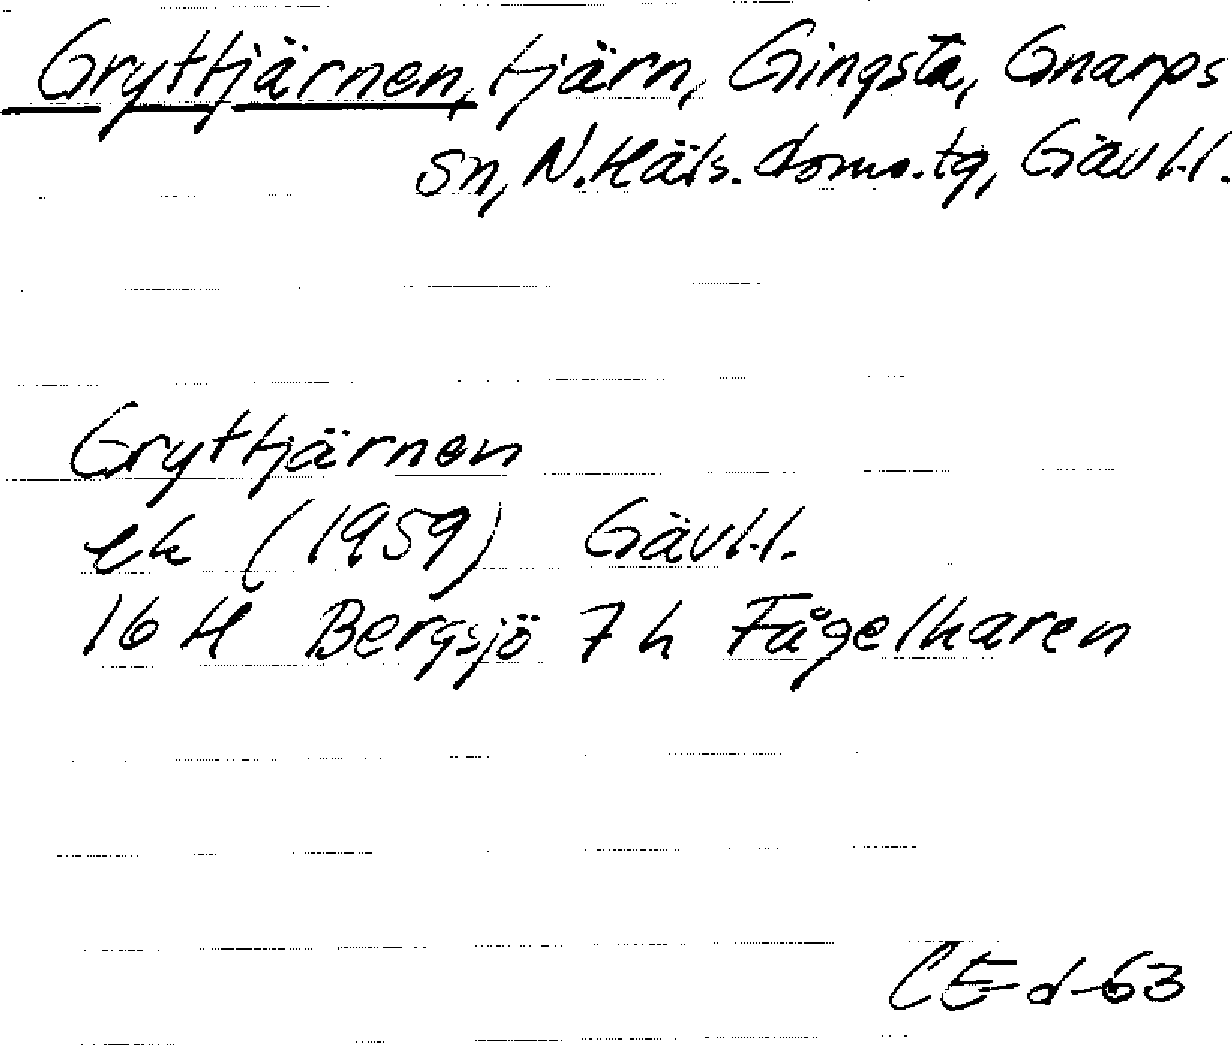 Gryttjärnen, tjärn, Gingsta, Gnarps
sn, N. Häls. doms. tg, Gävl.l.
Gryttjärnen
ek (1959) Gävl.l.
16 H Bergsjö 7 h Fågelharen
CEd-63